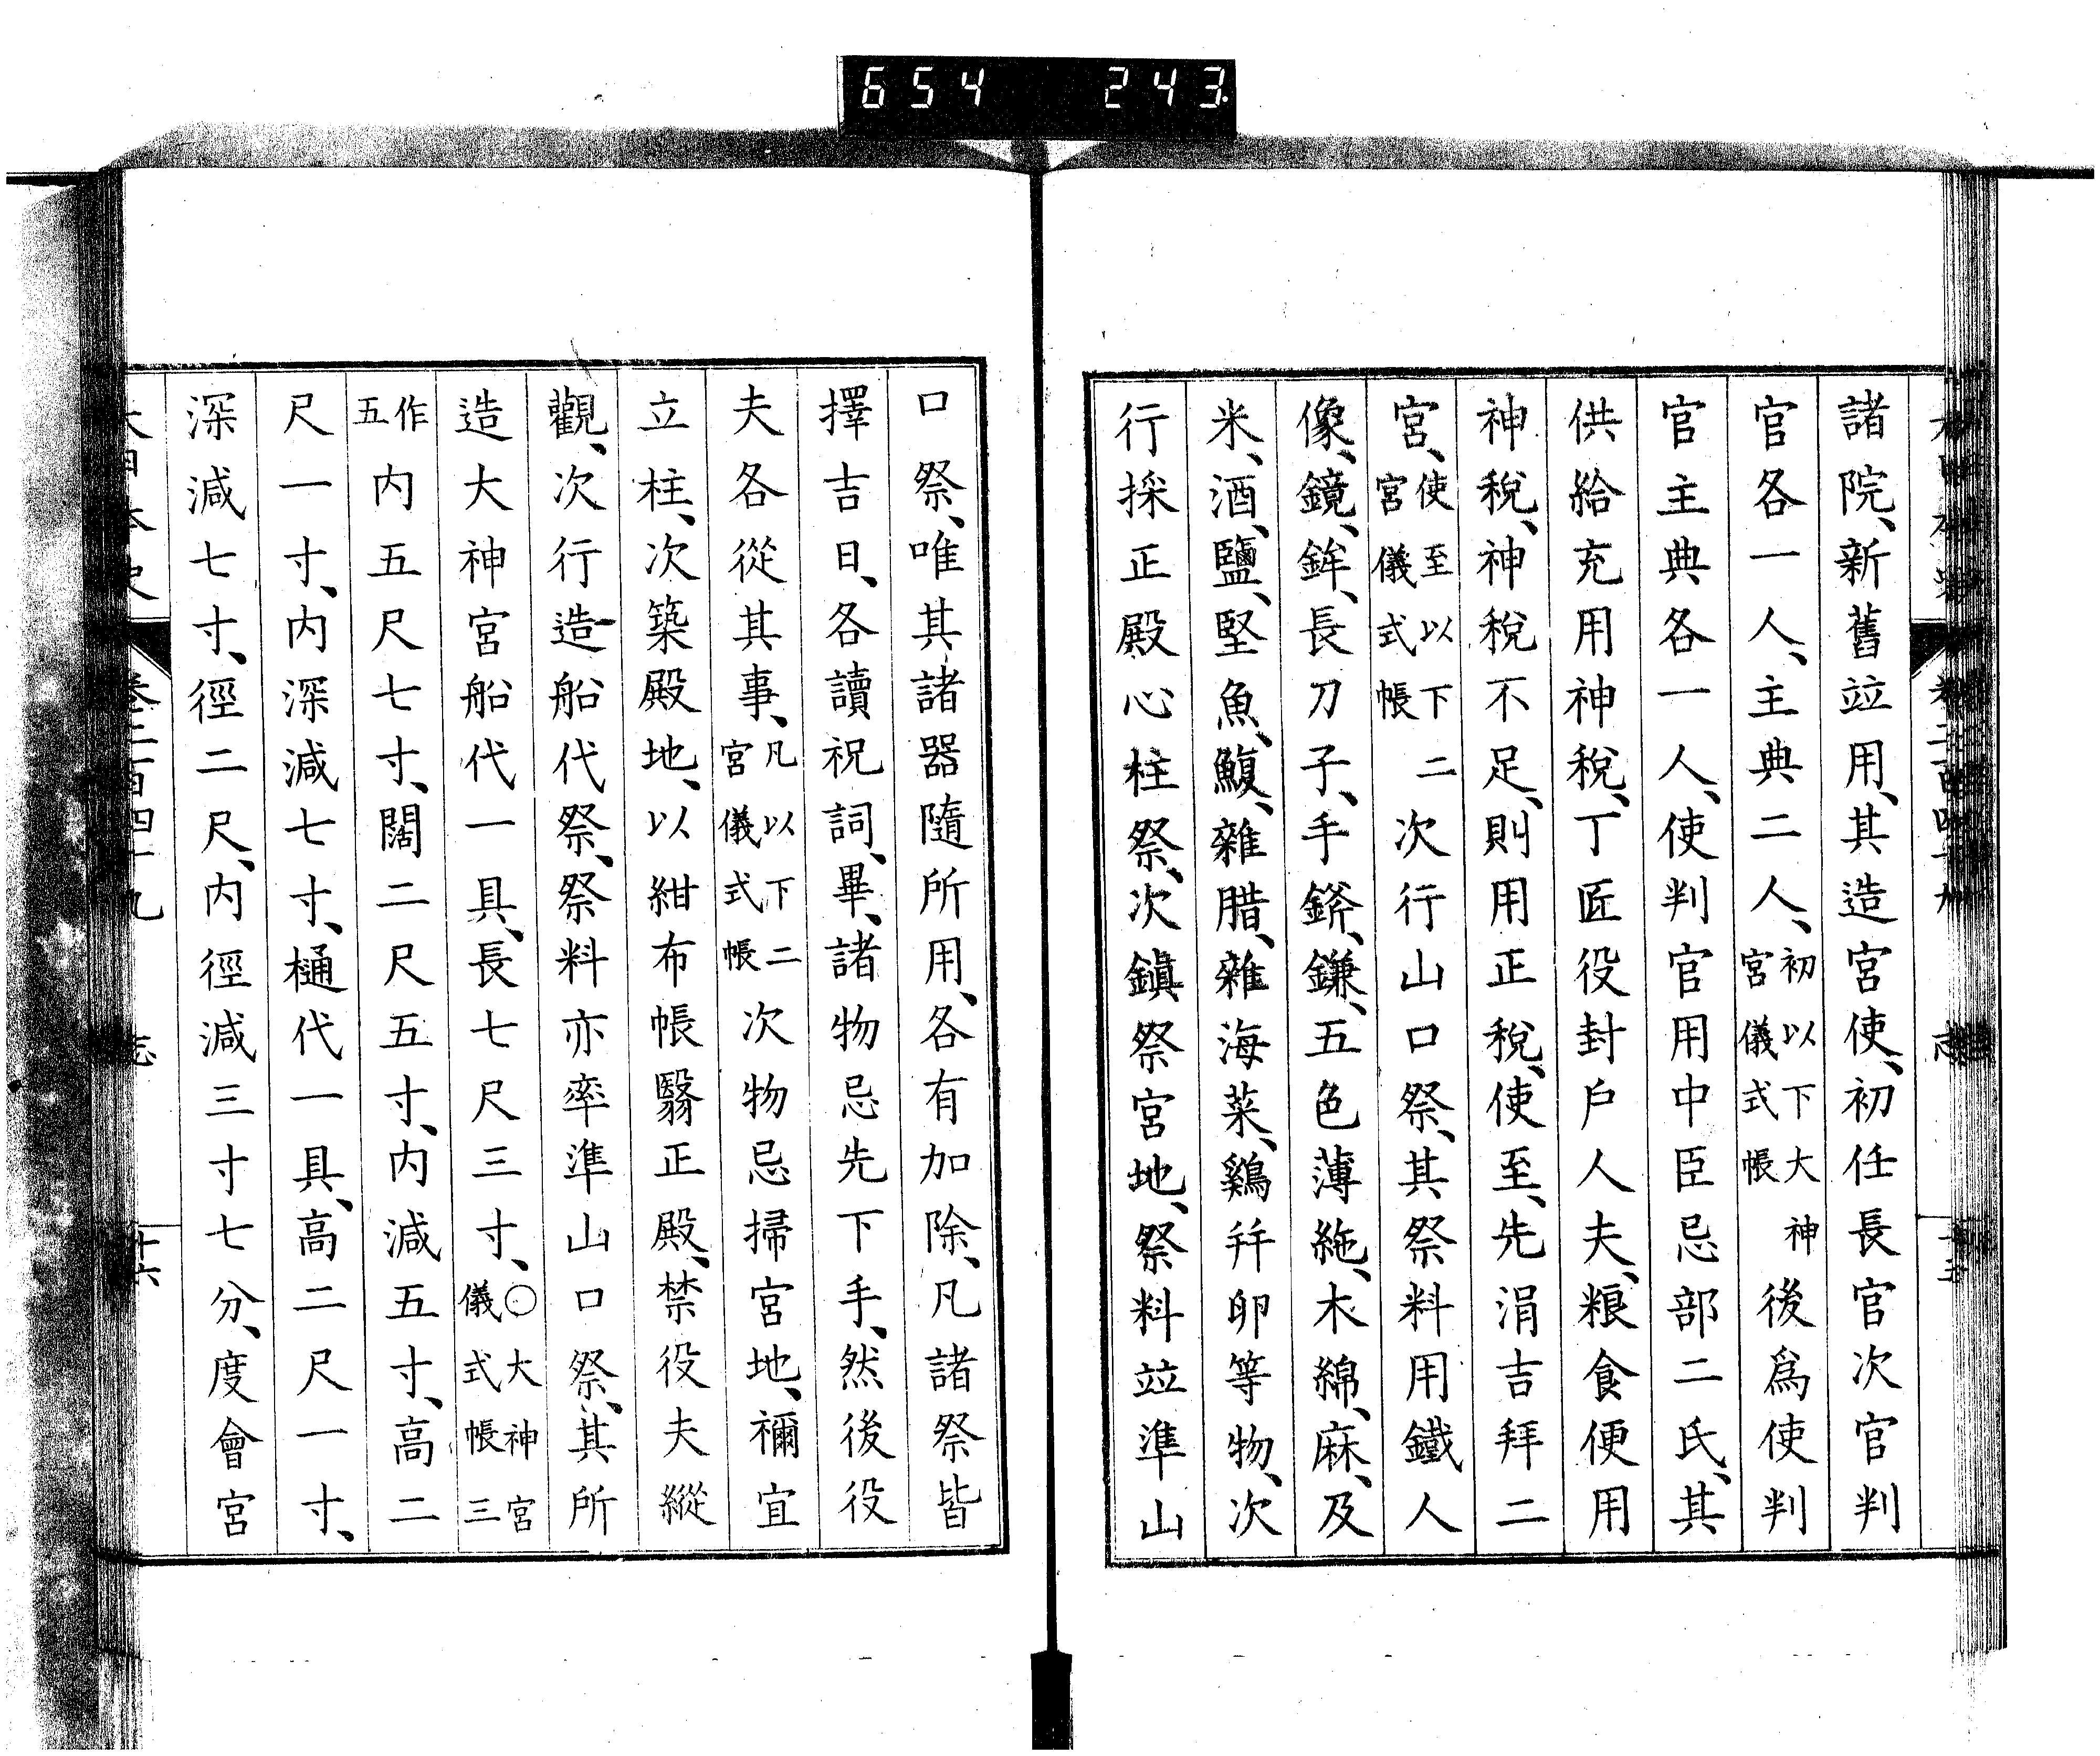 654 243.
諸院、新舊竝用、其造宮使、初任長官次官判
官各一人、主典二人、初以下大神宮儀式帳後爲使判
官主典各一人、使判官用中臣忌部二氏、其
供給充用神稅、丁匠役封戶人夫、粮食便用
神稅、神稅不足、則用正稅、使至、先涓吉拜二
宮、使至以下二宮儀式帳次行山口祭、其祭料用鐵人
像、鏡、鉾、長刀子、手鎊、鎌、五色薄絁、木綿、麻、及
米、酒、鹽、堅魚、鰒、雜腊、雜海菜、鷄幷卵等物、次
行採正殿心柱祭、次鎭祭宮地、祭料竝準山
口祭、唯其諸器隨所用、各有加除、凡諸祭皆
擇吉日、各讀祝詞、畢、諸物忌先下手、然後役
夫各從其事、凡以下二宮儀式帳次物忌掃宮地、禰宜
立柱、次築殿地、以紺布帳翳正殿、禁役夫縱
觀、次行造船代祭、祭料亦率準山口祭、其所
造大神宮船代一具、長七尺三寸、○大神宮儀式帳三
作五內五尺七寸、闊二尺五寸、內減五寸、高二
尺一寸、內深減七寸、樋代一具、高二尺一寸、
深減七寸、徑二尺、內徑減三寸七分、度會宮
大日本史 卷二百四十九 志 十六